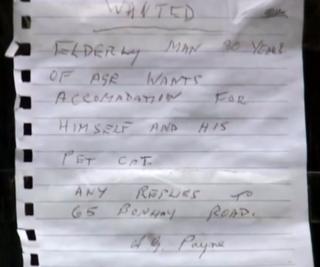 WANTED
ELDERLY MAN 80 YEARS
OF AGE WANTS
ACCOMADATION FOR
HIMSELF AND HIS
PET CAT.
ANY REPLIES TO
65 ROAD.
Payne